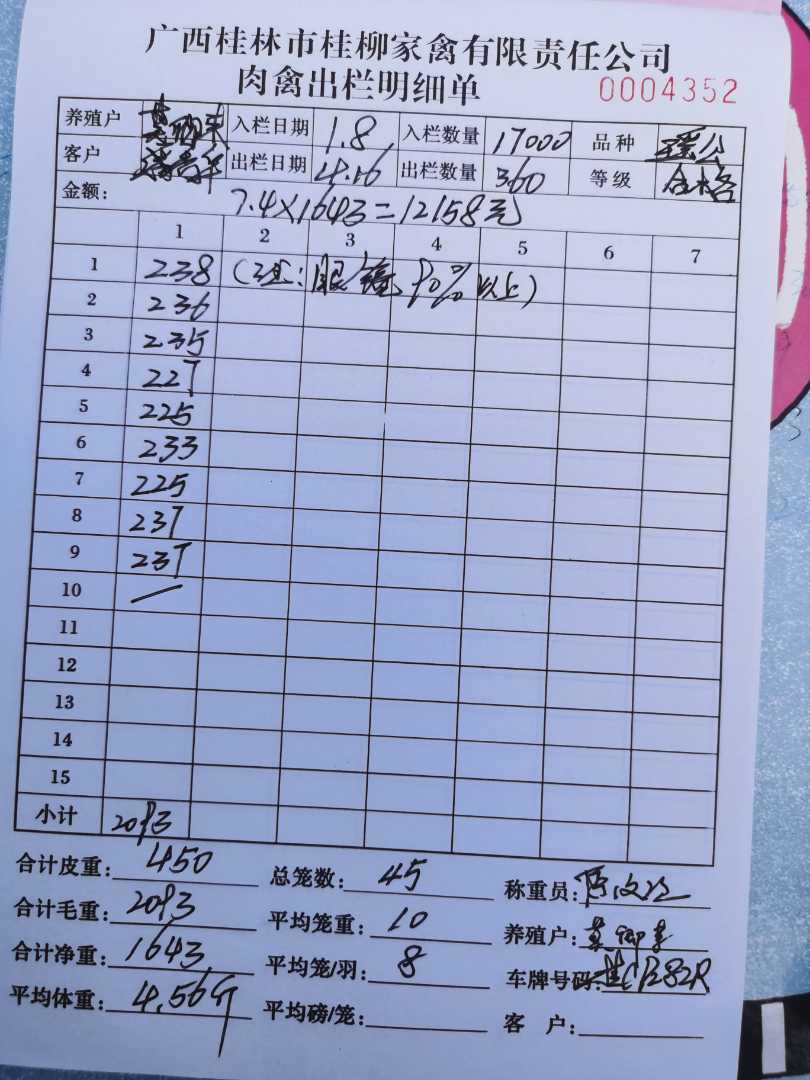 广西桂林市桂柳家禽有限责任公司
肉禽出栏明细单
0004352
养殖户 入栏日期 1.8 入栏数量 17000 品种 瑶公
客户 出栏日期 4.16 出栏数量 360 等级 合格
金额: 7.4×1643=12158元
1 2 3 4 5 6 7
1 238 (注:眼 90%以上)
2 236
3 235
4 227
5 225
6 233
7 225
8 237
9 237
10 —
11
12
13
14
15
小计 2093
合计皮重: 450 总笼数: 45 称重员:
合计毛重: 2093 平均笼重: 10 养殖户:
合计净重: 1643 平均笼/羽: 8 车牌号码:
平均体重: 4.56斤 平均磅/笼: 客 户: